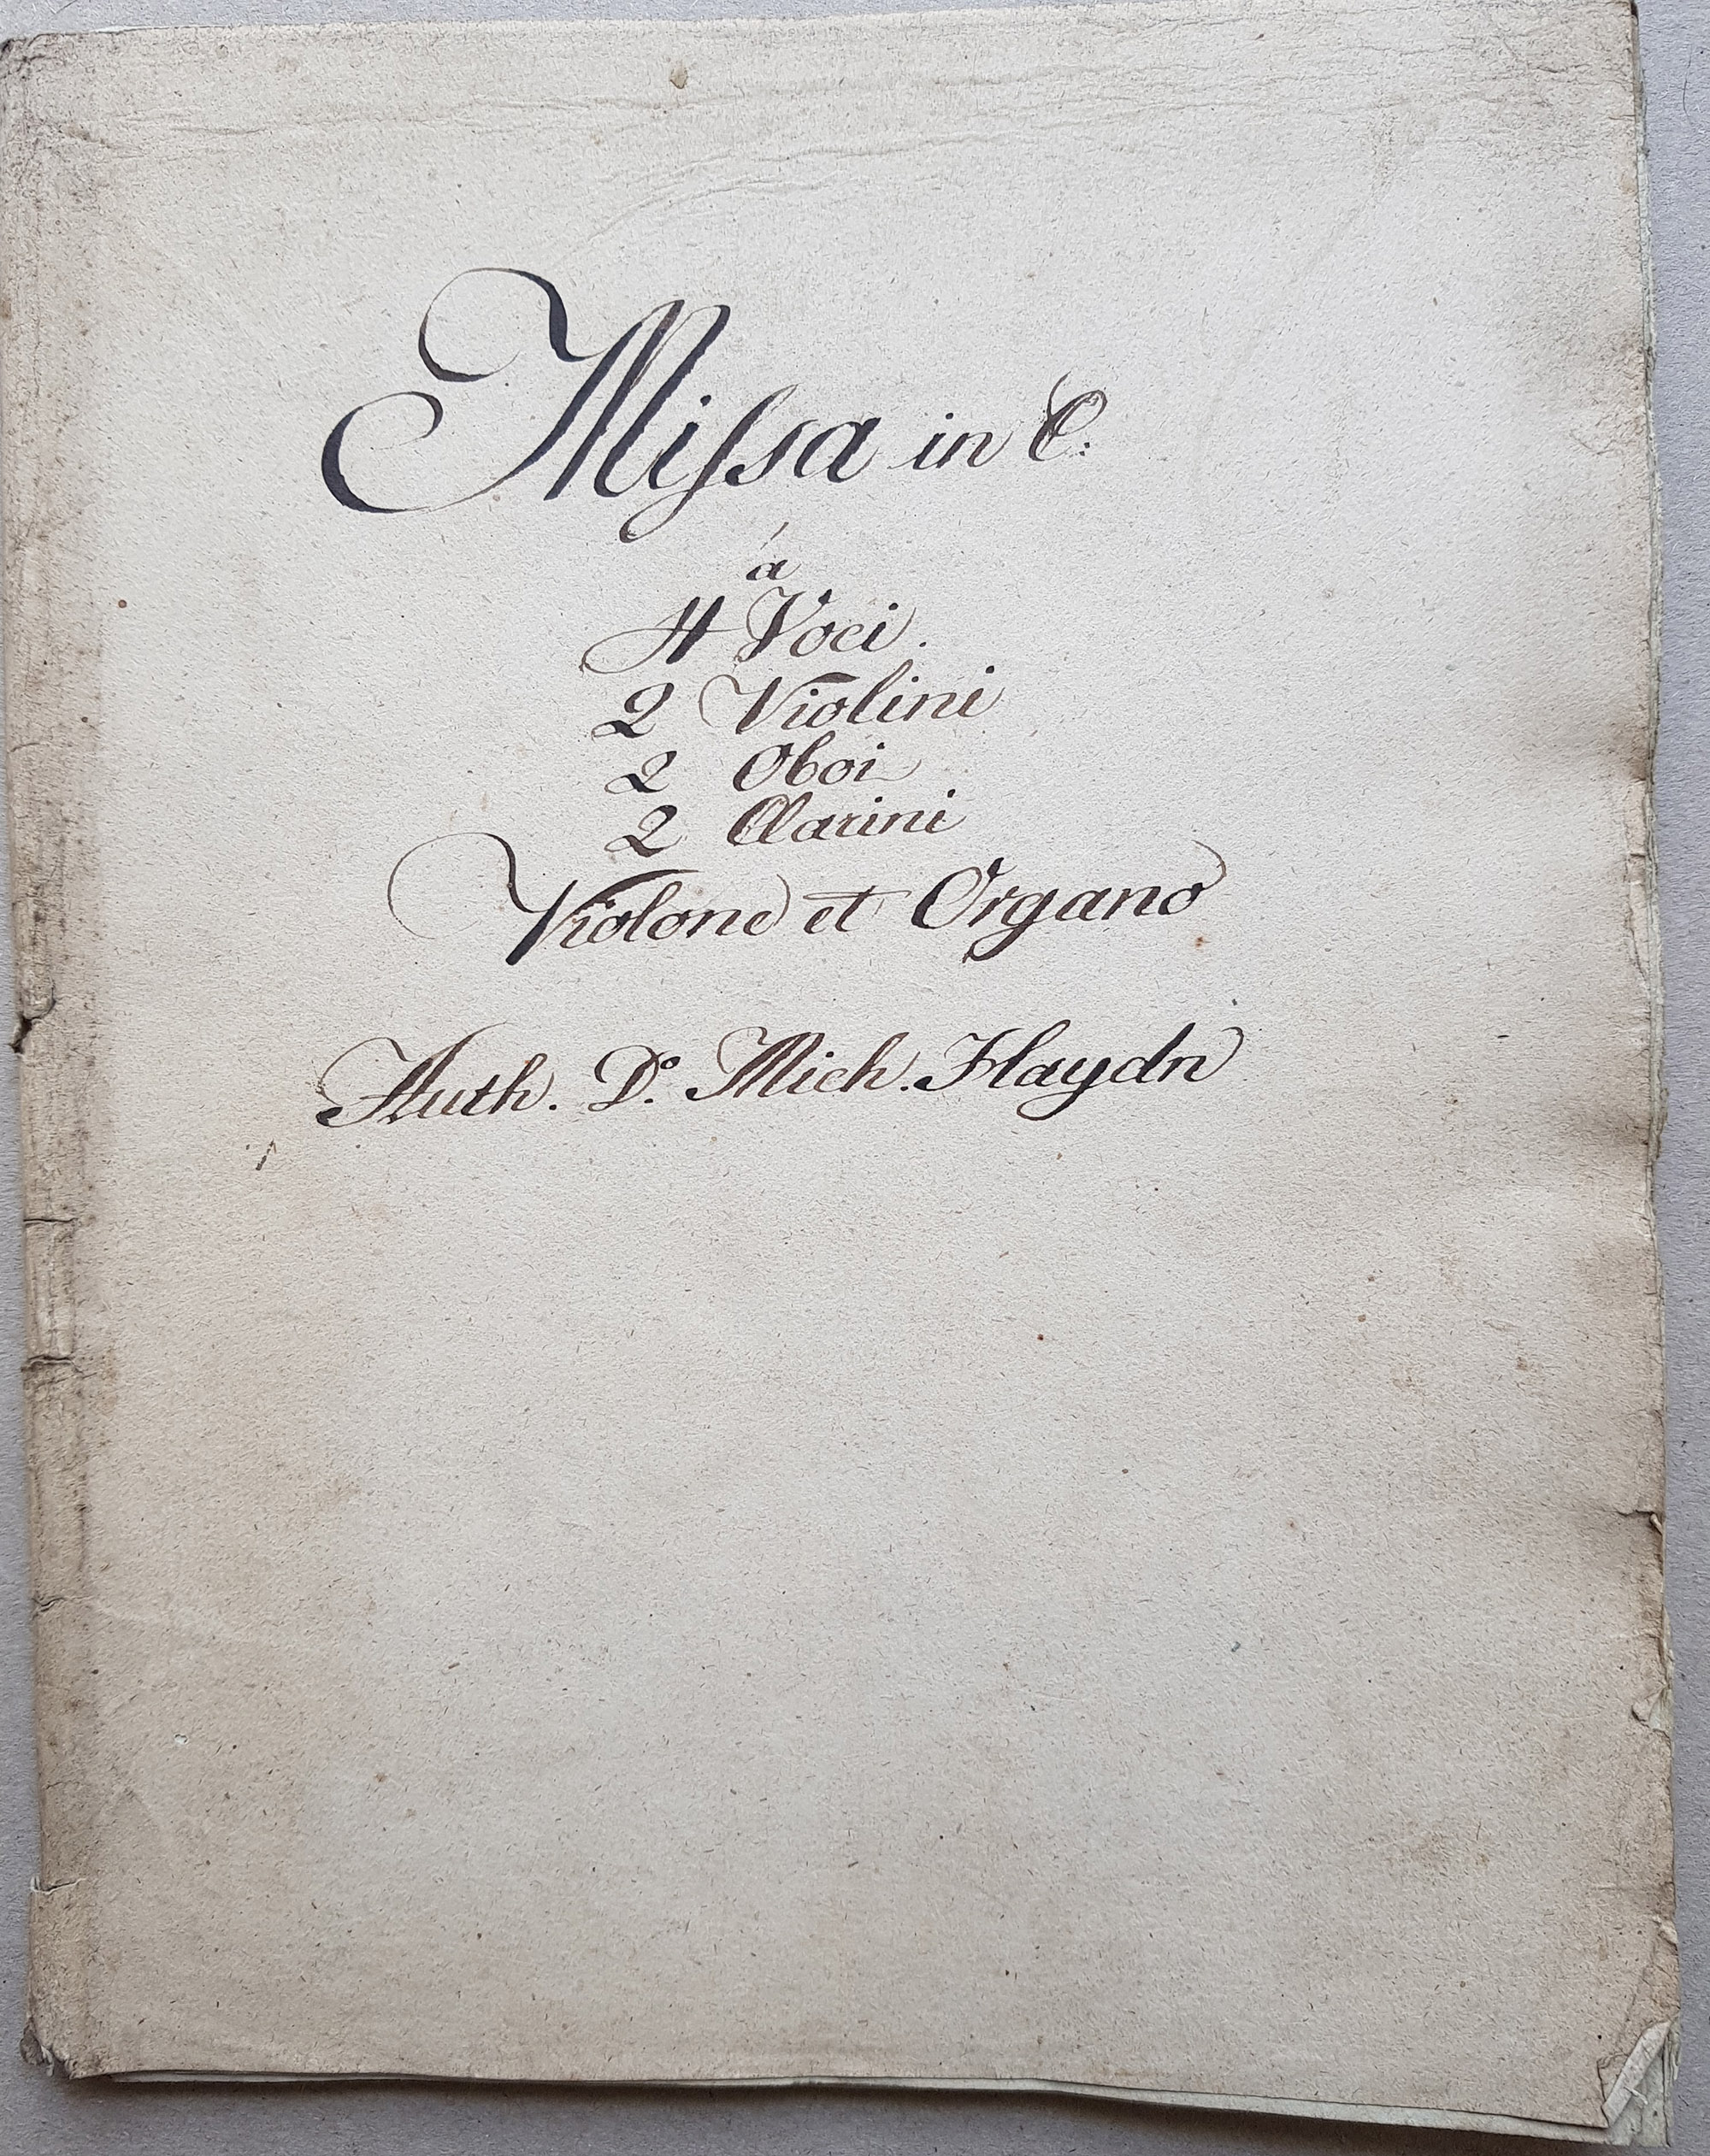 Missa in C:
á
4 Voci.
2 Violini
2 Oboi
2 Clarini
Violone et Organo
Auth. D.º Mich. Haydn